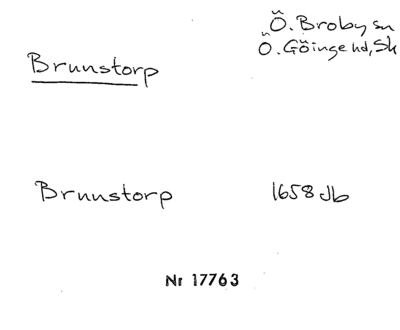 Ö. Broby sn
Ö. Göinge hd, Sk
Brunstorp
Brunstorp 1658 Jb
Nr 17763